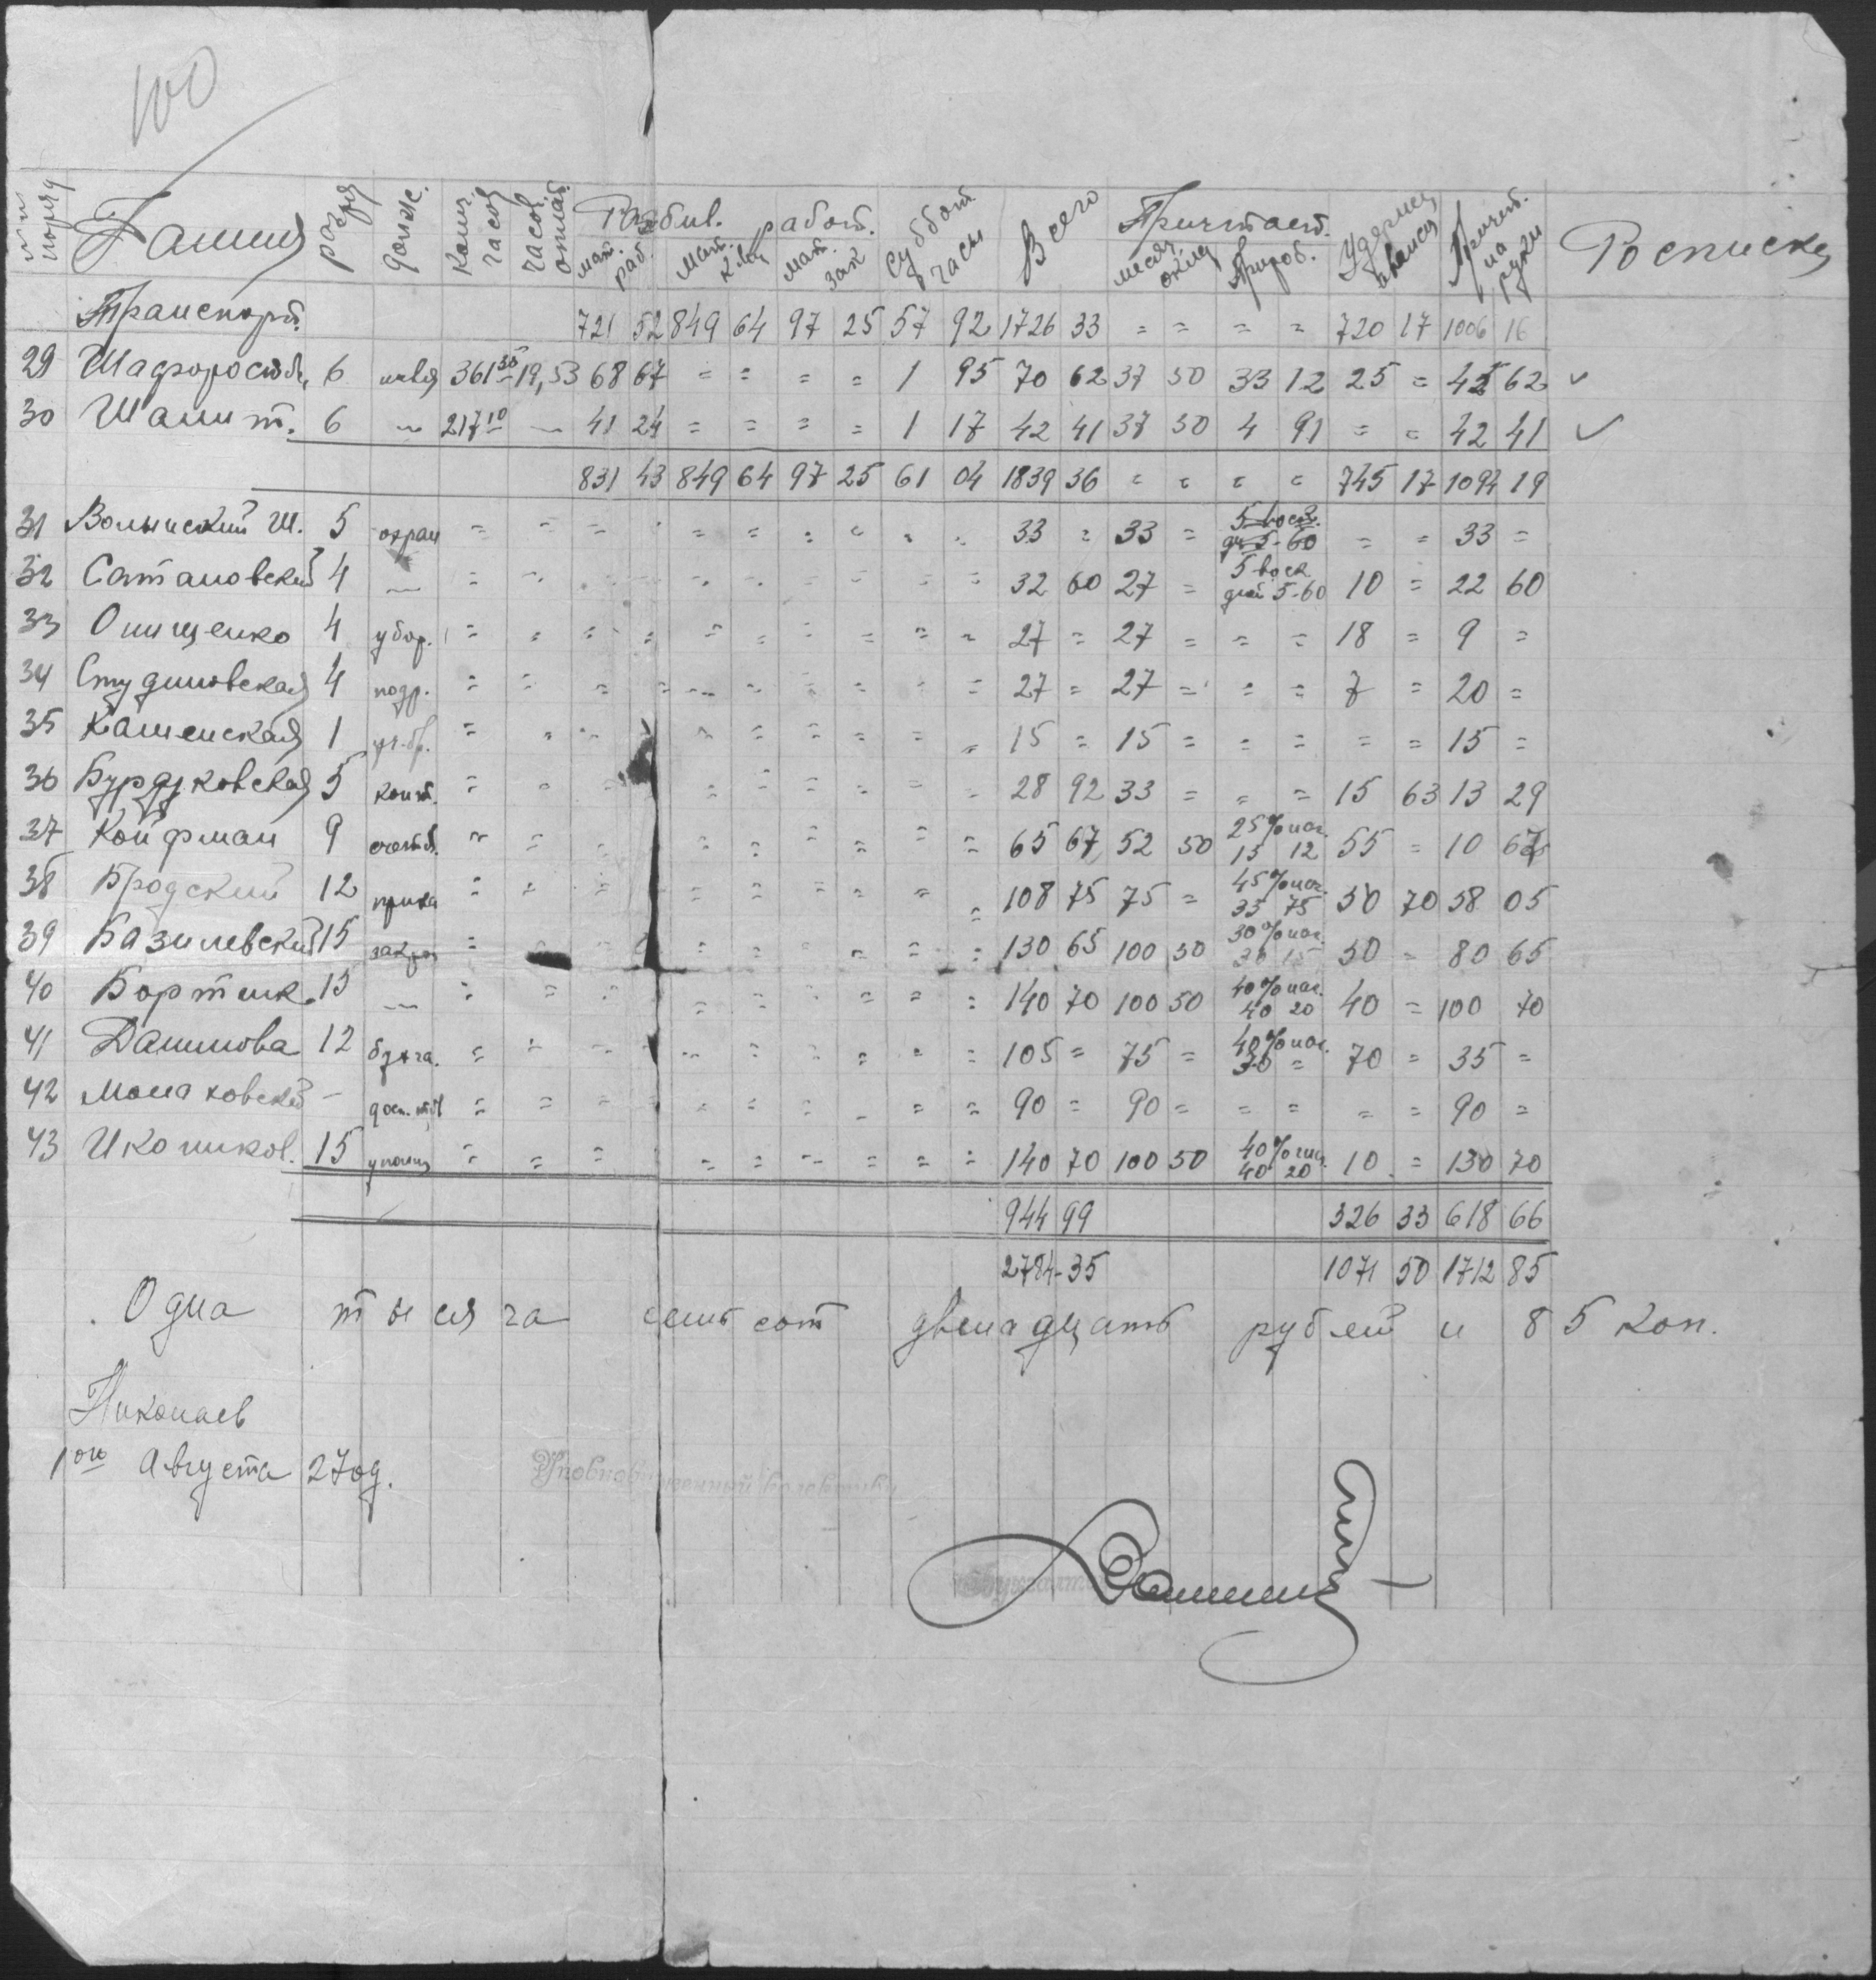 100
Фамил разря Долж. Колич. часов часов. оплат. Разбив. работ. суббот часы Всего Причитает. Удержа аванса Причит. на руки Росписка
мат. раб. мат. мат. зак месяч. оклад Прираб.
Транспорт. 721 52 849 64 97 25 57 92 1726 33 = = = = 720 17 1006 16
29 6 361 30 19,53 68 67 = = = = 1 95 70 62 37 50 33 12 25 = 45 62 ✓
30 Шамит. 6 〃 217 10 — 41 24 = = = = 1 17 42 41 37 50 4 91 = = 42 41 ✓
831 43 849 64 97 25 61 04 1839 36 = = = = 745 17 1094 19
31 Волынский Ш. 5 охран = = = = = = = = = = 33 = 33 = 5 вос. дн 5-60 = = 33 =
32 Сатановский 4 — = = = = = = = = = = 32 60 27 = 5 воск дней 5-60 10 = 22 60
33 Онищенко 4 убор. = = = = = = = = = = 27 = 27 = = = 18 = 9 =
34 Студиновская 4 подр. = = = = = = = = = = 27 = 27 = = = 7 = 20 =
35 Каменская 1 уч.бр. = = = = = = = = = 15 = 15 = = = = = 15 =
36 Бурдуковская 5 конт. = = = = = = = = 28 92 33 = = = 15 63 13 29
37 Койфман 9 = = = = = = = = = 65 67 52 50 25% наг. 13 12 55 = 10 67
38 Бродский 12 = = = = = = = = = 108 75 75 = 45% наг. 33 75 50 70 58 05
39 Базилевский 15 закр = = = = = = = = 130 65 100 50 30% наг. 30 15 50 = 80 65
40 Бортник. 15 — = = = = = = = = = 140 70 100 50 40% наг. 40 20 40 = 100 70
41 Данилова 12 = = = = = = = = = 105 = 75 = 40% наг. 30 = 70 = 35 =
42 Монаховский — = = = = = = = = = 90 = 90 = = = = = 90 =
43 Иконников. 15 = = = = = = = = = 140 70 100 50 40% наг. 40 20 10 = 130 70
944 99 326 33 618 66
2784-35 1071 50 1712 85
Одна тысяча семьсот двенадцать рублей и 85 коп.
Николаев
1ого Августа 27од.